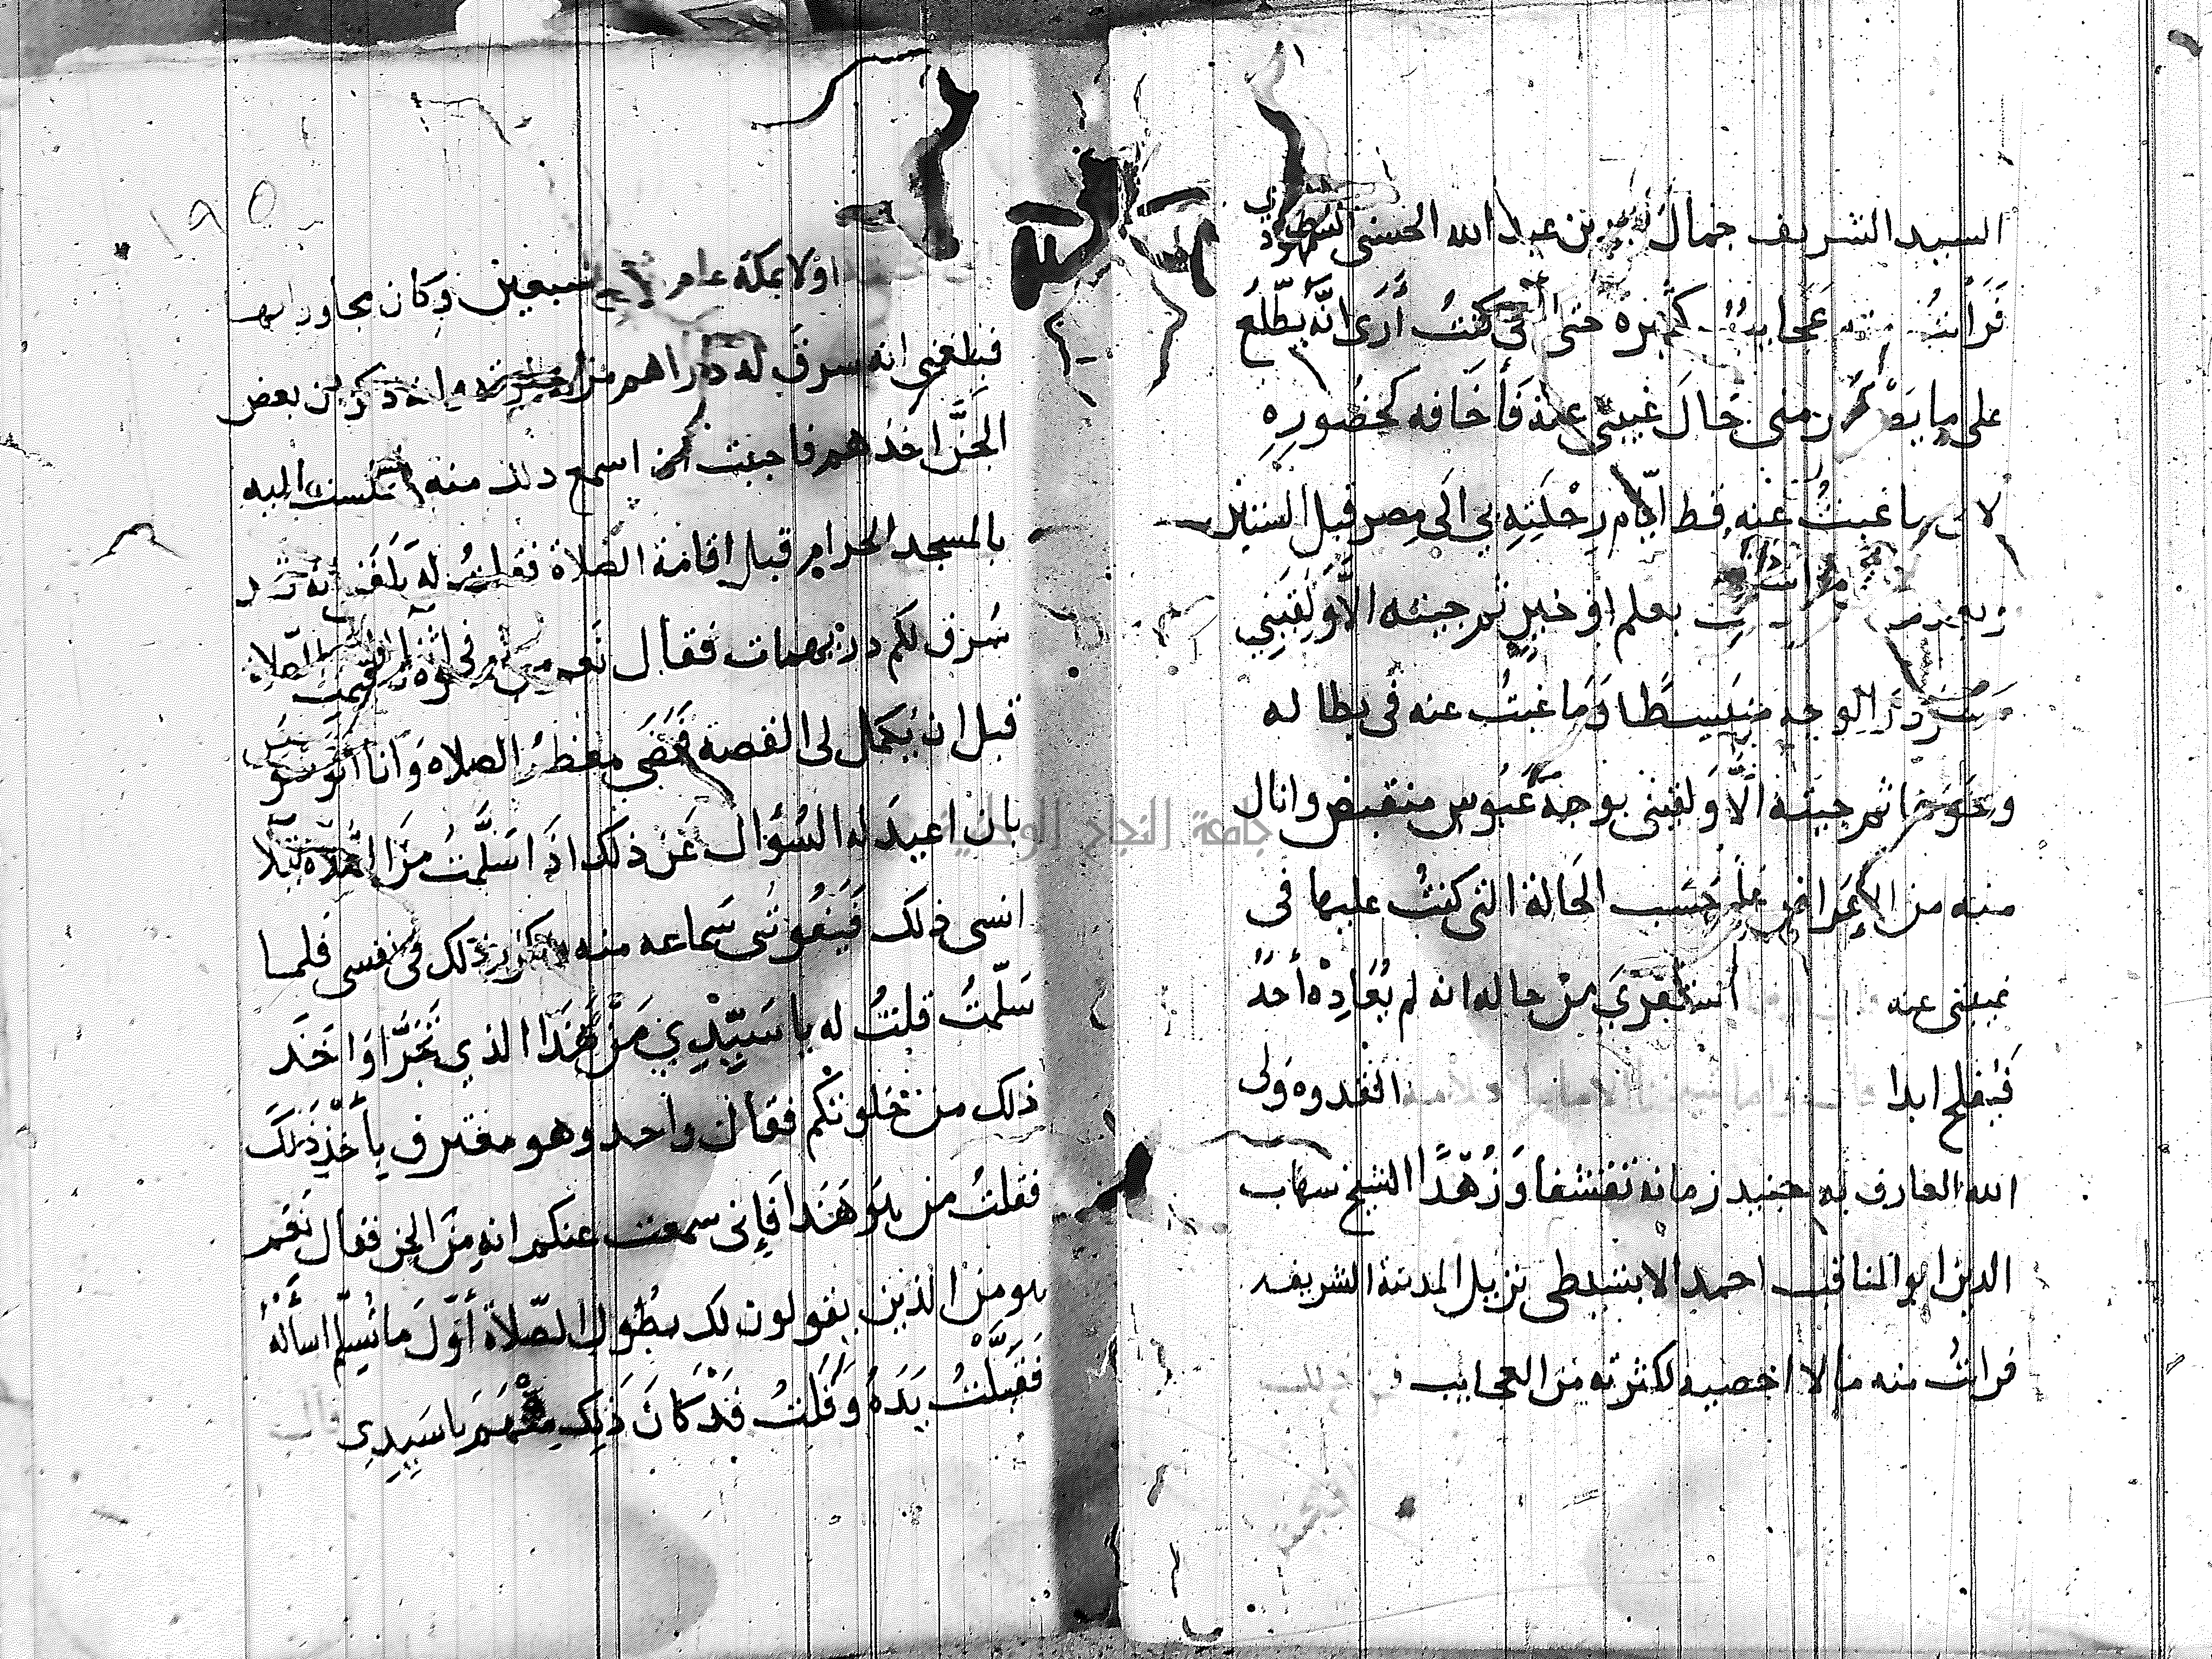 السيد الشريف جمال بن عبد الله الحسني السمهودي
فرأيتُ منه عجايب كثيرة حتى أني كنتُ أرى انّه يطّلع
على ما يصدر مني حال غيبتي عنه فأخافه كحضوره
ما غبتُ عنه قط ايّام رحلته بي الى مصر قبل الستين
بعلم او خير ثم جيته الا ولقيني
الوجه منبسطا وما غبتُ عنه في بطاله
ونحوها ثم جيته الّا ولقيني بوجه عبوس منقبض وانال
منه من الإعراض على حسب الحالة التي كنتُ عليها في
غيبتي عنه استقرى من حاله انه لم يُعاده أحدٌ
فيفلح ابدا القدوه ولى
الله العارف به جنيد زمانه تقشفا وزُهدًا الشيخ شهاب
الدين ابو المناقب احمد الابشيطى نزيل المدينة الشريفه
فرايتُ منه ما لا احصيه لكثرته من العجايب فمن ذلك
١٩٥
اولا بمكة عام سبعين وكان مجاورا بها
فبلغني انه سرق له دراهم من وانه ذكر ان بعض
الجنّ اخذهم فاحببت ان اسمع ذلك منه فجلست اليه
بالمسجد الحرام قبل اقامة الصلاة فقلت له بلغني انه قد
سُرق لكم دريهمات فقال نعم الصلاة
قبل ان يكمل لى القصه فمضى معظمُ الصلاه وانا اتوسوس
بان اعيد له السُؤال عن ذلك اذا سلّمتُ من الصلاه ليلا
انسى ذلك فيفوتنى سماعه منه ذلك في نفسى فلما
سلّمتُ قلتُ له يا سيّدِي مَن هَذا الذي تجرّا واخذ
ذلك من خلوتكم فقال واحد وهو معترف بأخذ ذلك
فقلتُ من هو هَذا فإنى سمعت عنكم انه من الجن فقال نعم
هو من الذين يقولون لك بطُول الصّلاة أوّلَ ما تُسلّم اسألهُ
فقبّلتُ يدهُ وقلتُ قد كان ذلك يا سيدِي